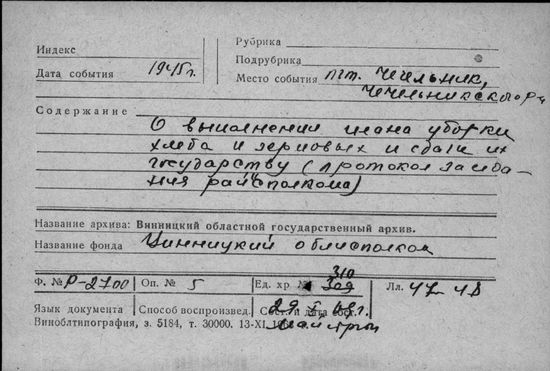 Индекс
Рубрика
Подрубрика
Дата события 1945г.
Место события пгт. Чечельник,
Чечельникского р-
Содержание
О выполнении плана уборки
хлеба и зерновых и сдачи их
государству (протокол заседа-
ния райисполкома)
Название архива: Винницкий областной государственный архив.
Название фонда Винницкий облисполком
Ф. № Р-2700 Оп. № 5 Ед. хр № 310 Лл. 47-48
Язык документа Способ воспроизвед. Сост. и дата сост.
Виноблтипография, з. 5184, т. 30000. 13-XI